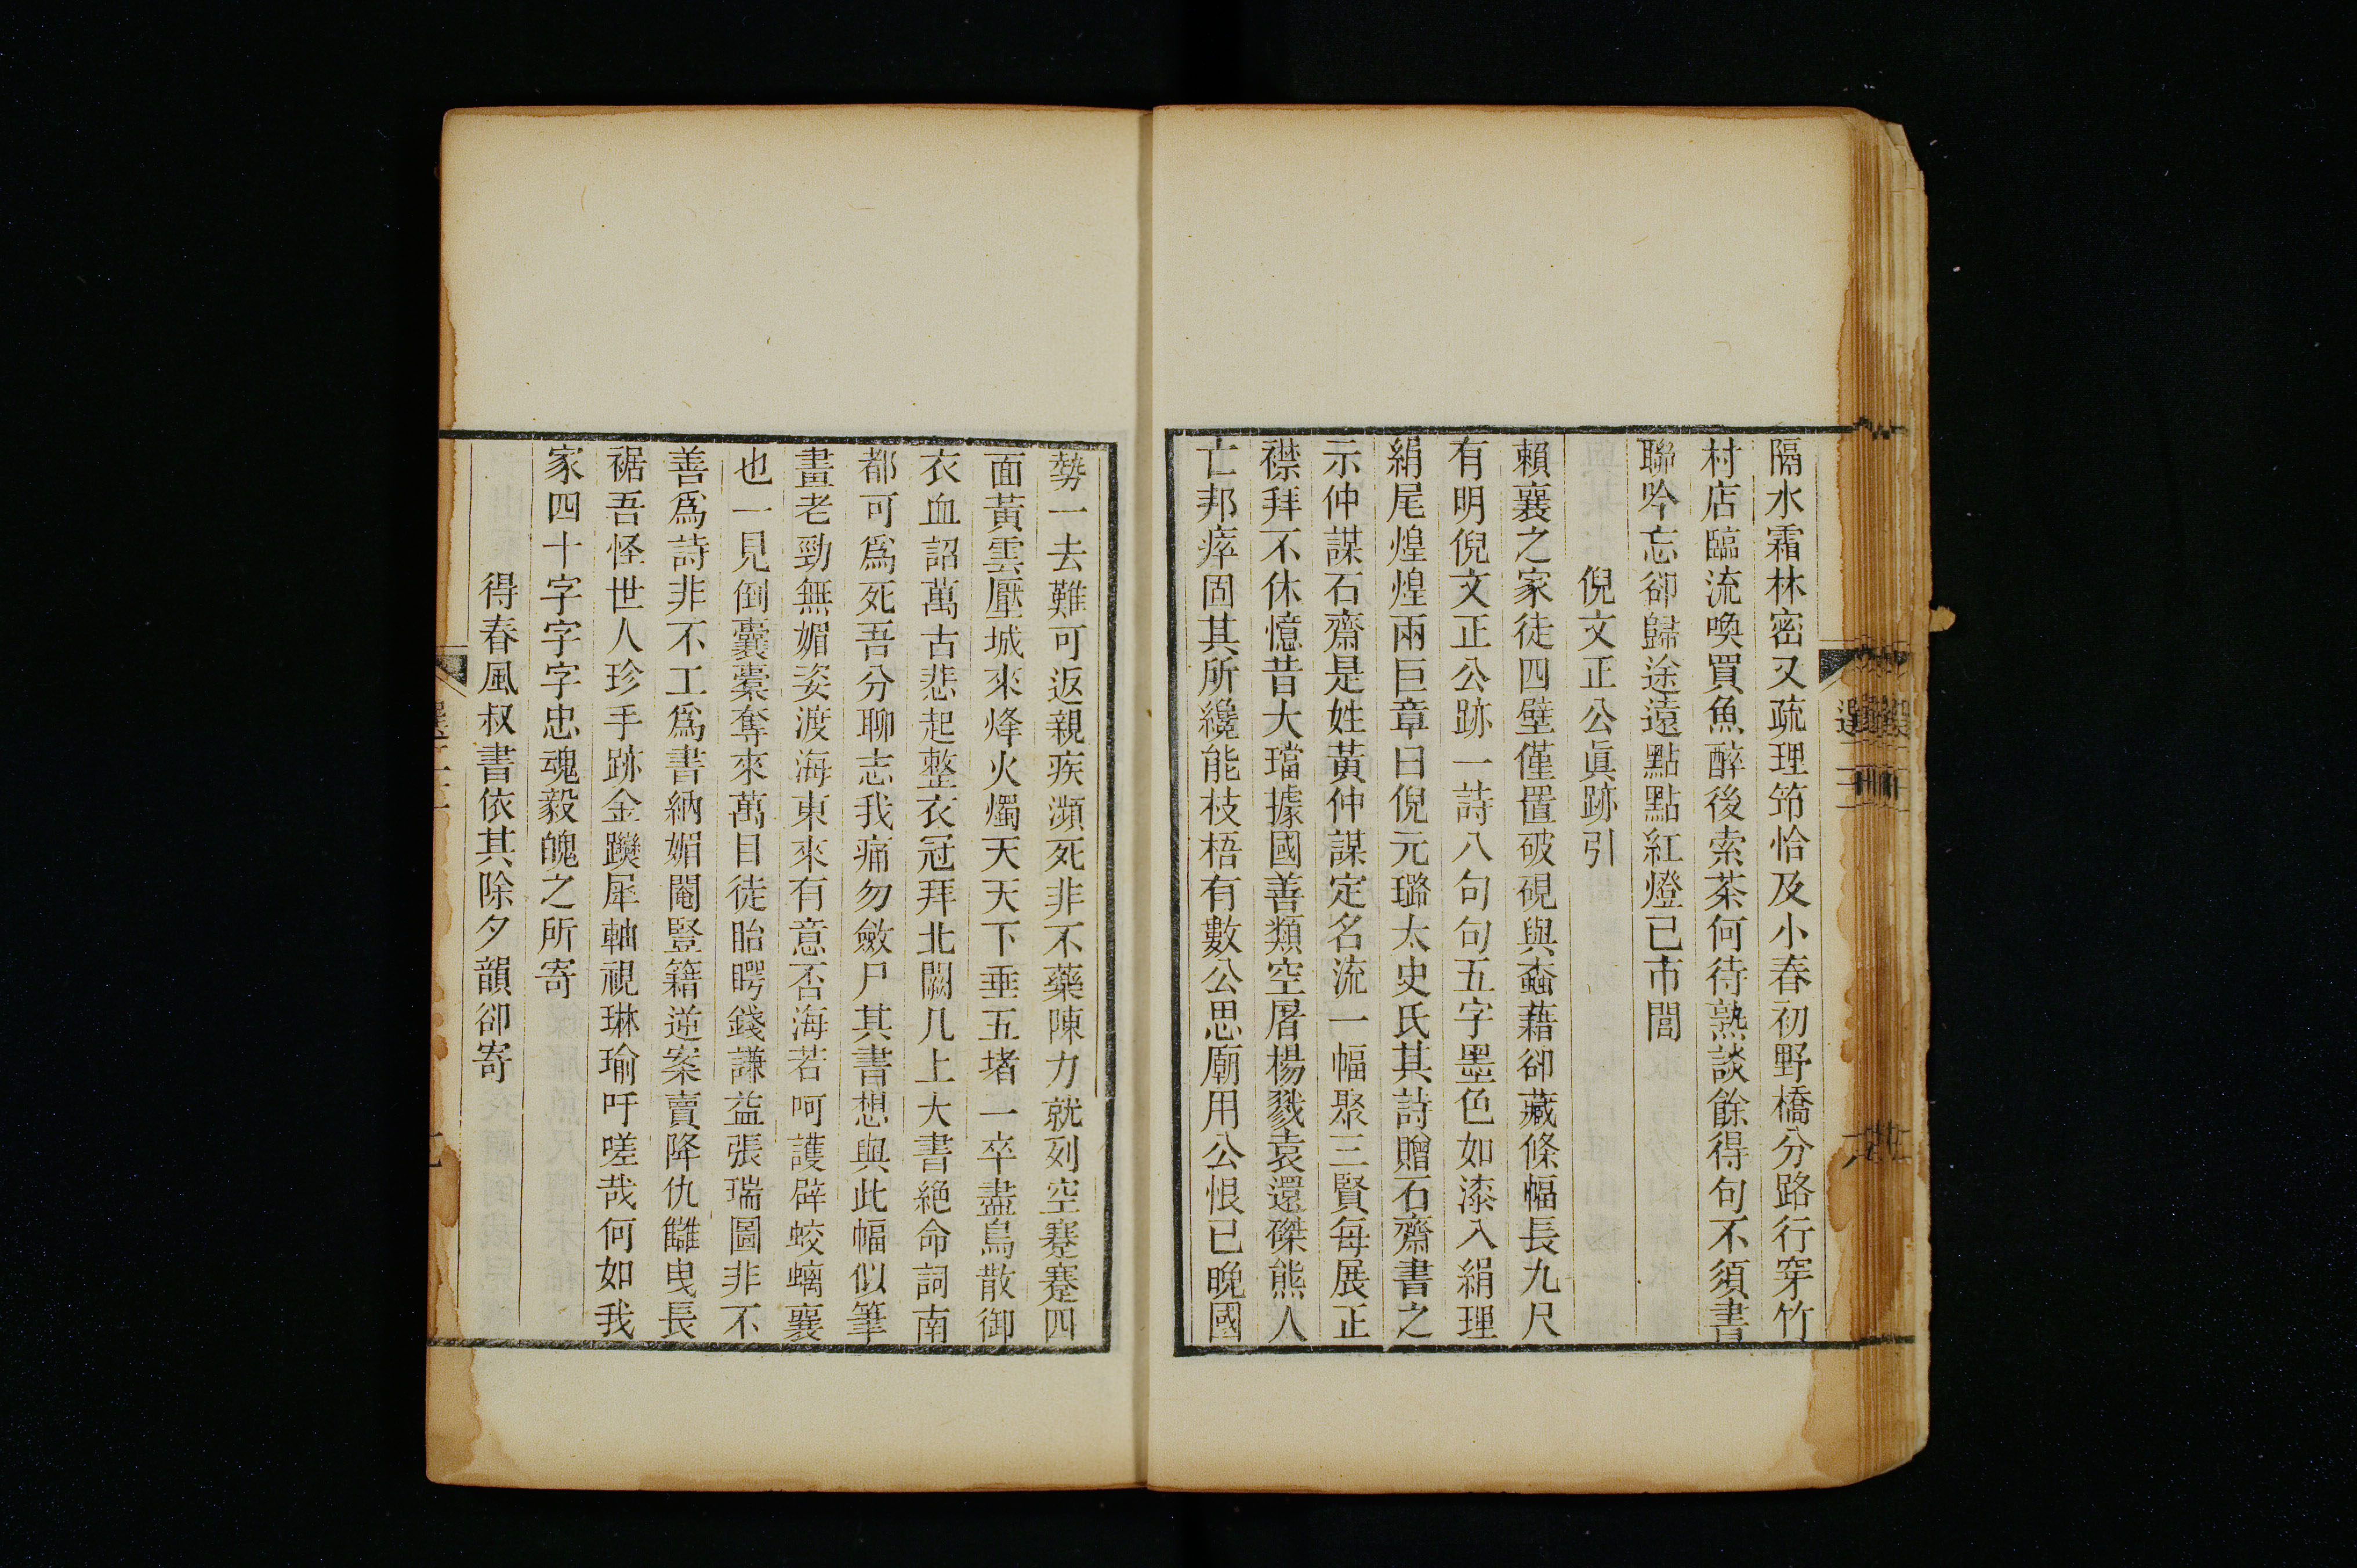 隔水霜林密又疏理筇恰及小春初野橋分路行穿竹
村店臨流喚買魚醉後索茶何待熟談餘得句不須書
聯吟忘卻歸途遠點點紅燈已市閭
倪文正公眞跡引
賴襄之家徒四壁僅置破硯與蠹藉卻藏條幅長九尺
有明倪文正公跡一詩八句句五字墨色如漆入絹理
絹尾煌煌兩巨章曰倪元璐太史氏其詩贈石齋書之
示仲謀石齋是姓黃仲謀定名流一幅聚三賢每展正
襟拜不休憶昔大璫據國善類空屠楊戮袁還磔熊人
亡邦瘁固其所纔能枝梧有數公思廟用公恨已晚國
勢一去難可返親疾瀕死非不藥陳力就列空蹇蹇四
面黃雲壓城來烽火燭天天下垂五堵一卒盡鳥散御
衣血詔萬古悲起整衣冠拜北闕几上大書絶命詞南
都可爲死吾分聊志我痛勿斂尸其書想與此幅似筆
畫老勁無媚姿渡海東來有意否海若呵護辟蛟螭襄
也一見倒囊橐奪來萬目徒眙睜錢謙益張瑞圖非不
善爲詩非不工爲書納媚閹豎籍逆案賣降仇讎曳長
裾吾怪世人珍手跡金躞犀軸視琳瑜吁嗟哉何如我
家四十字字字忠魂毅魄之所寄
得春風叔書依其除夕韻卻寄